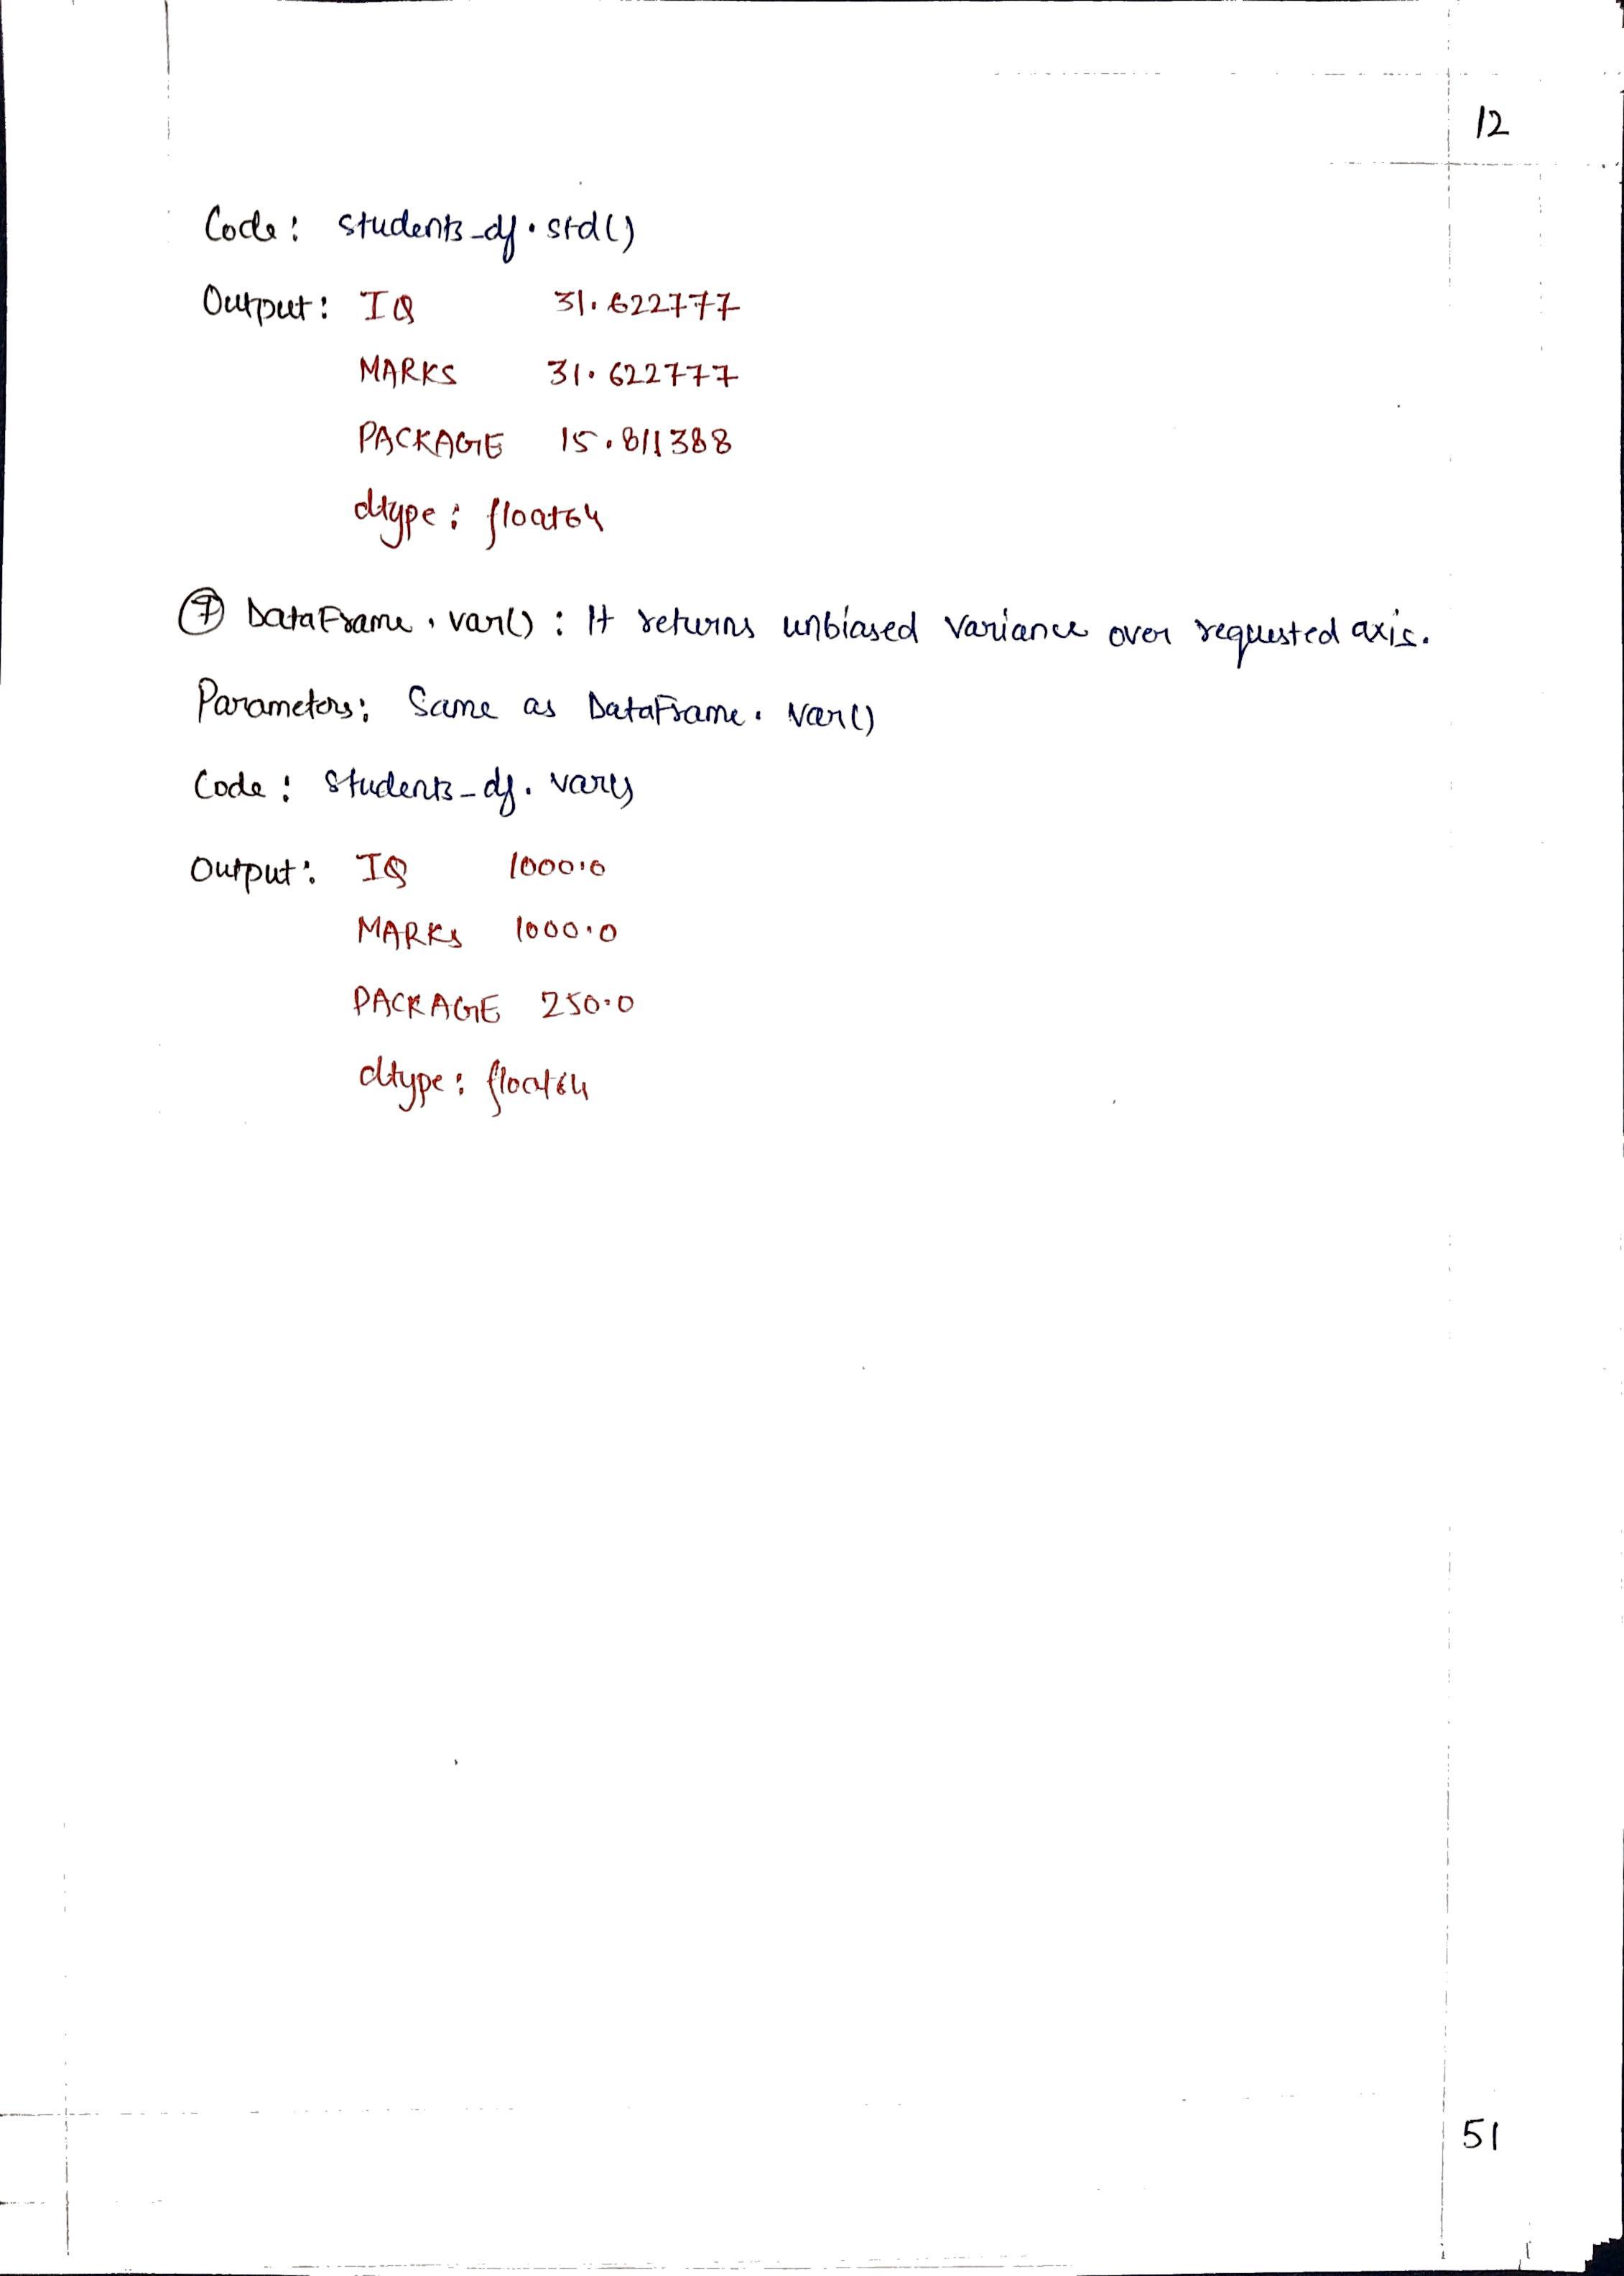 12
Code: students_df.std()
Output: IQ 31.622777
MARKS 31.622777
PACKAGE 15.811388
dtype: float64
⑦ DataFrame.var(): It returns unbiased variance over requested axis.
Parameters: Same as DataFrame.var()
Code: students_df.var()
Output: IQ 1000.0
MARKS 1000.0
PACKAGE 250.0
dtype: float64
51